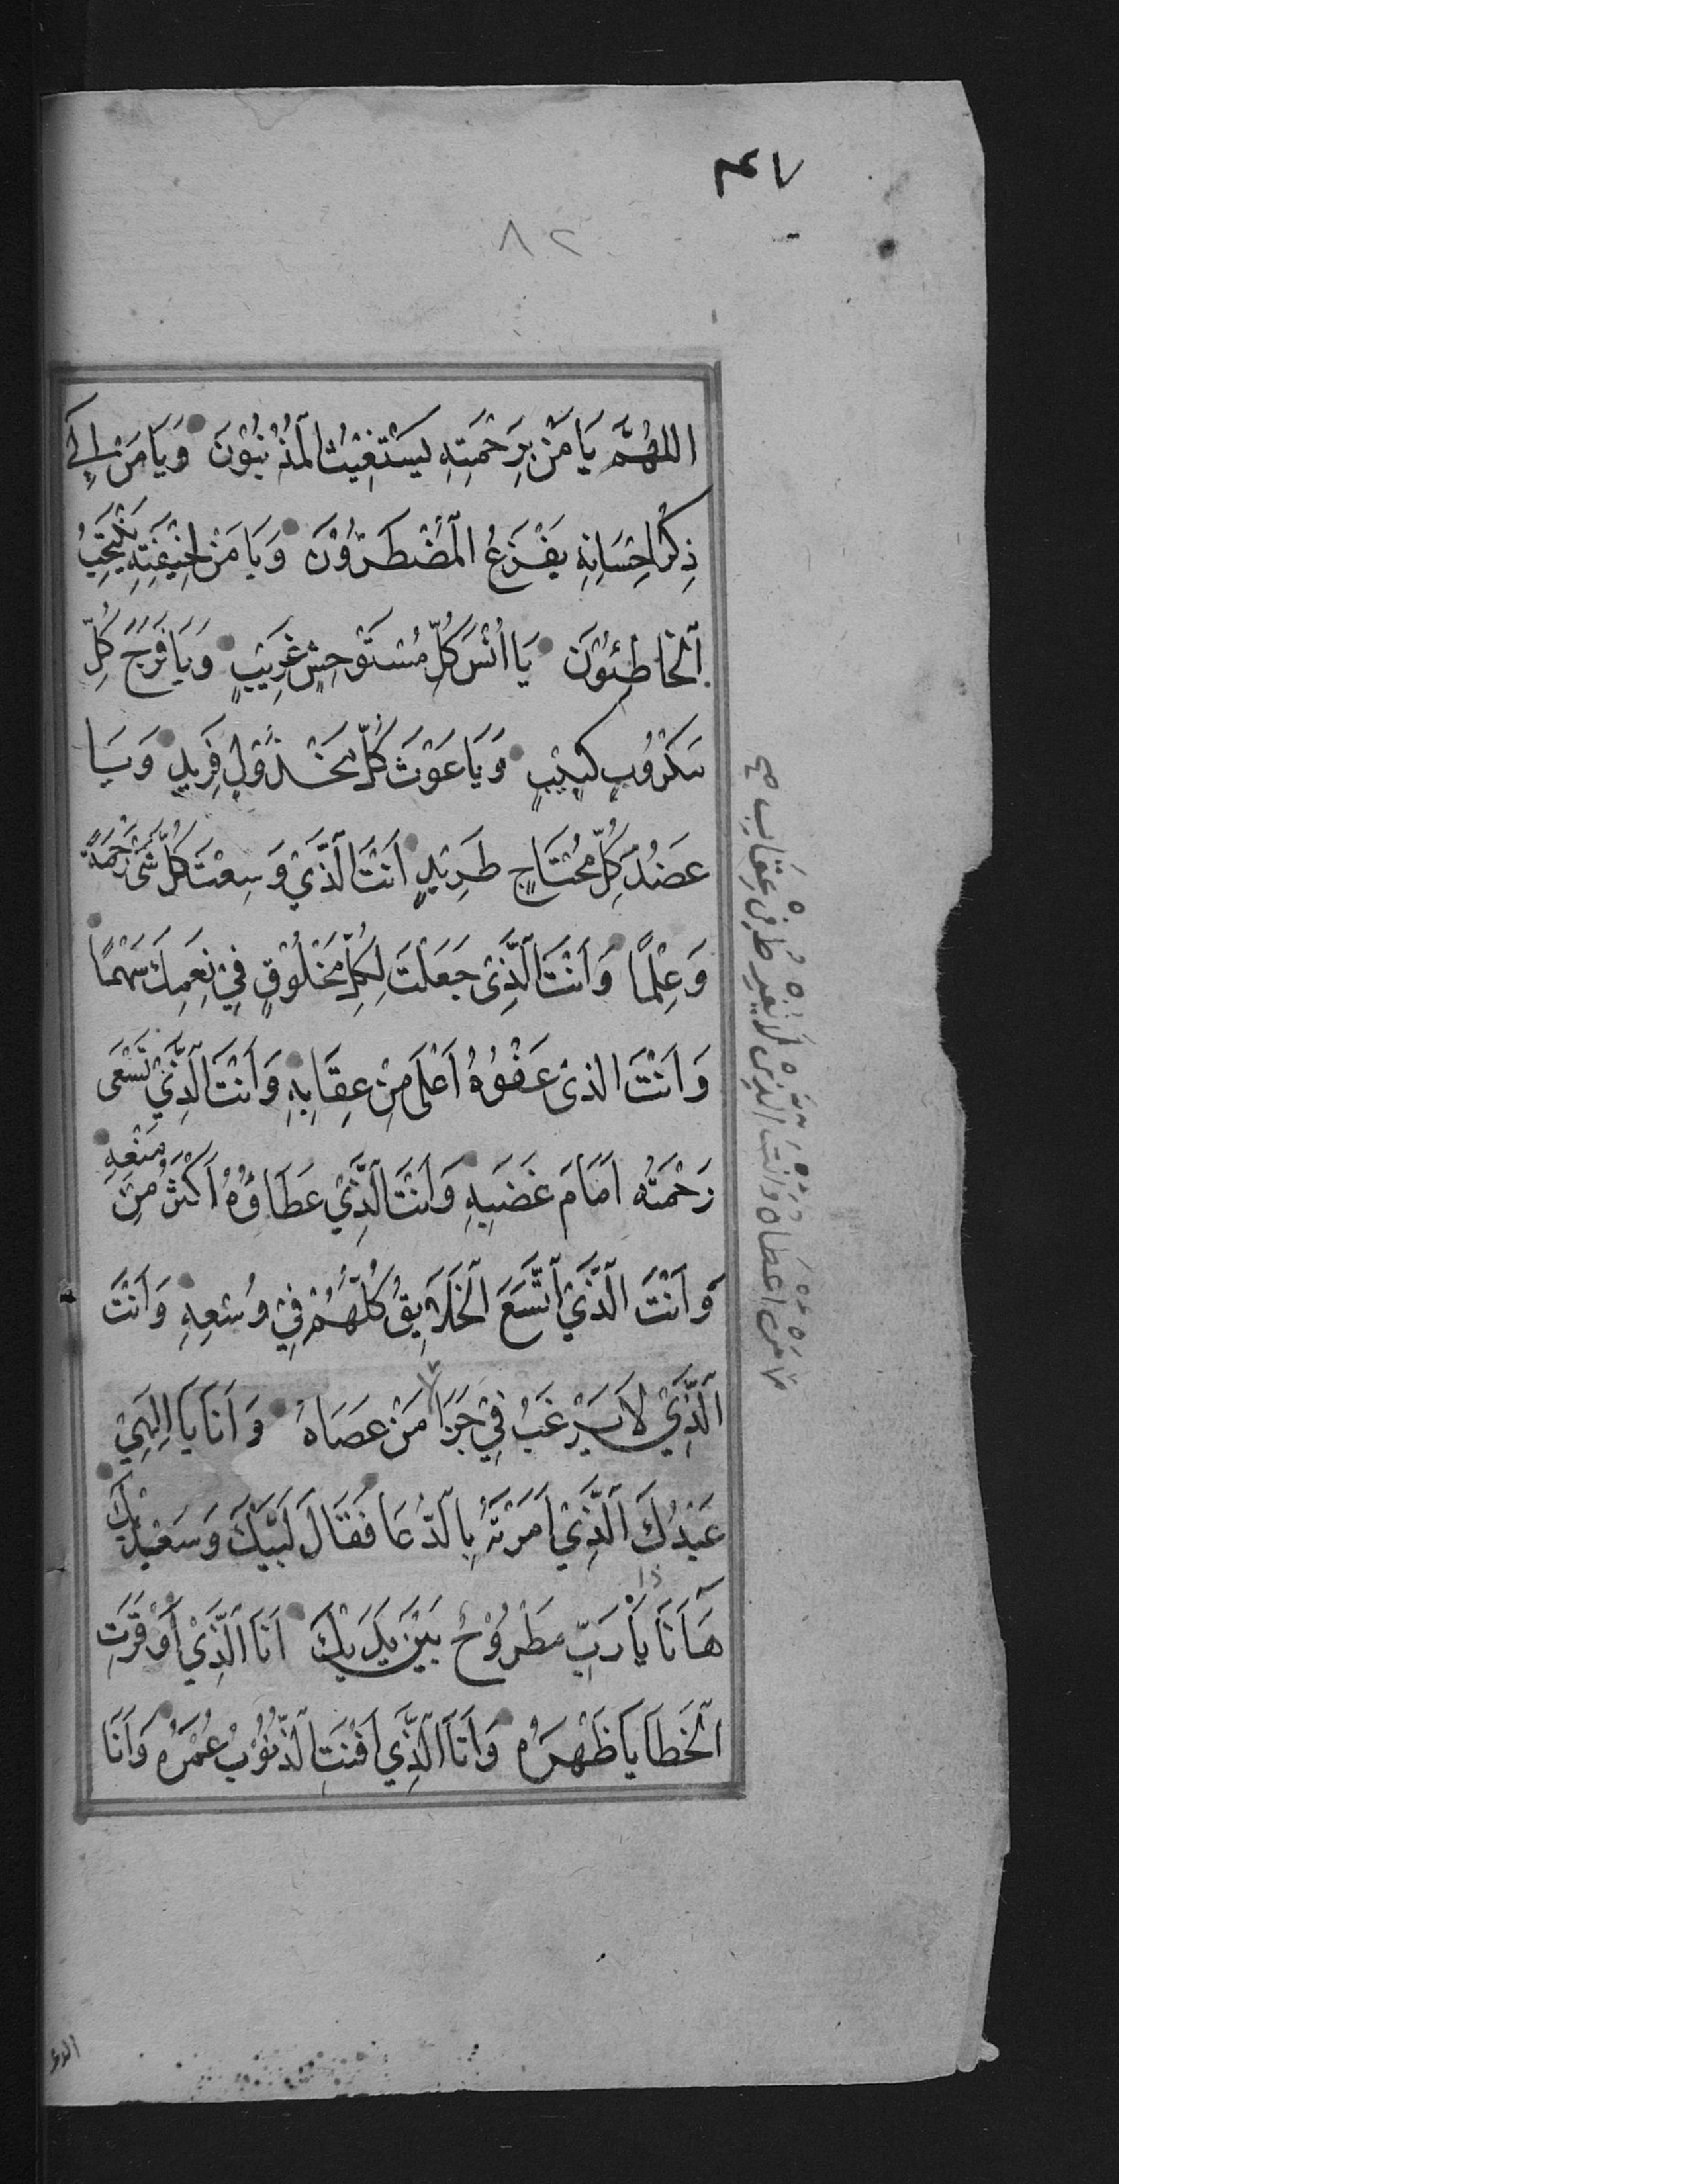 ٨٢
اللهُمَّ يَا مَنْ بِرَحْمَتِهِ يَسْتَغِيْثُ الْمُذْنِبُوْنَ وَيَا مَنْ اِلَى
ذِكْرِ اِحْسَانِهِ يَفْزَعُ الْمُضْطَرُّوْنَ وَيَا مَنْ لِخِيْفَتِهِ يَنْتَحِبُ
الْخَاطِئُوْنَ يَا اُنْسَ كُلِّ مُسْتَوْحِشٍ غَرِيْبٍ وَيَا فَرَجَ كُلِّ
مَكْرُوْبٍ كَئِيْبٍ وَيَا غَوْثَ كُلِّ مَخْذُوْلٍ فَرِيْدٍ وَيَا
عَضُدَ كُلِّ مُحْتَاجٍ طَرِيْدٍ اَنْتَ الَّذِيْ وَسِعْتَ كُلَّ شَيْءٍ رَحْمَةً
وَعِلْمًا وَاَنْتَ الَّذِيْ جَعَلْتَ لِكُلِّ مَخْلُوْقٍ فِيْ نِعَمِكَ سَهْمًا
وَاَنْتَ الذى عَفْوُهُ اَعْلَى مِنْ عِقَابِهِ وَاَنْتَ الَّذِيْ تَسْعَى
رَحْمَتُه اَمَامَ غَضَبِهِ وَاَنْتَ الَّذِيْ عَطَاؤُهُ اَكْثَرُ مِنْ مَنْعِهِ
وَاَنْتَ الَّذِيْ اتَّسَعَ الْخَلَايِقُ كُلُّهُمْ فِيْ وُسْعِهِ وَاَنْتَ
الَّذِيْ لَا يَرْغَبُ فِيْ جَزَا مَنْ عَصَاهُ وَاَنَا يَا اِلٰهِيْ
عَبْدُكَ الَّذِيْ اَمَرْتَهُ بِالدُّعَا فَقَالَ لَبَّيْكَ وَسَعْدَيْكَ
هَا اَنَا ذا يَا رَبِّ مَطْرُوْحٌ بَيْنَ يَدَيْكَ اَنَا الَّذِيْ اَوْقَرَتِ
الْخَطَايَا ظَهْرَهُ وَاَنَا الَّذِيْ اَفْنَتِ الذُّنُوْبُ عُمْرَهُ وَاَنَا
مَنْ اَعْطَاهُ وَاَنْتَ الَّذِي لَا يُفْرِطُ فِي عِقَابِ صح